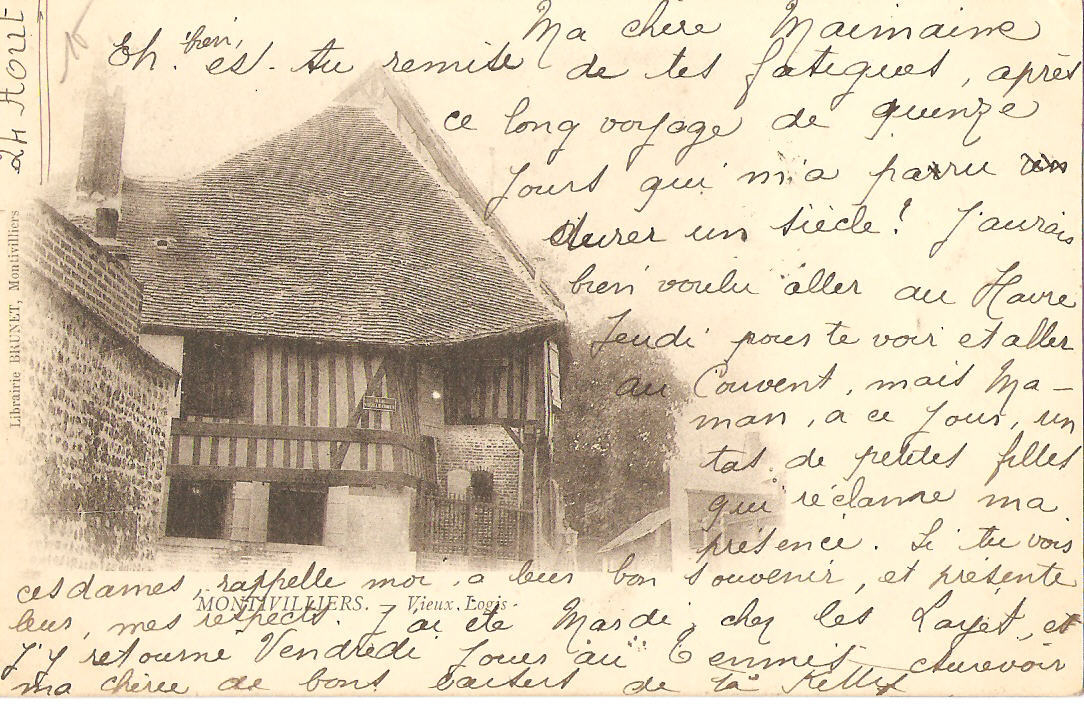 24 Aout
Ma chère Maimaine
Eh. bien, es-tu remise de tes fatigues, après
ce long voyage de quinze
jours qui m'a parru
durer un siècle! J'aurais
bien voulu aller au Havre
Jeudi pour te voir et aller
au Couvent, mais Ma-
man, a ce jour, un
tas de petites filles
qui réclame ma
présence. Si tu vois
ces dames, rappelle moi, a leur bon souvenir, et présente
leur, mes respects. J'ai été Mardi, chez les Layet, et
j'y retourne Vendredi jouer au Tennis, aurevoir
ma chérie de bons baisers de ta Kelly
MONTIVILLIERS. - Vieux Logis
Librairie BRUNET, Montivilliers